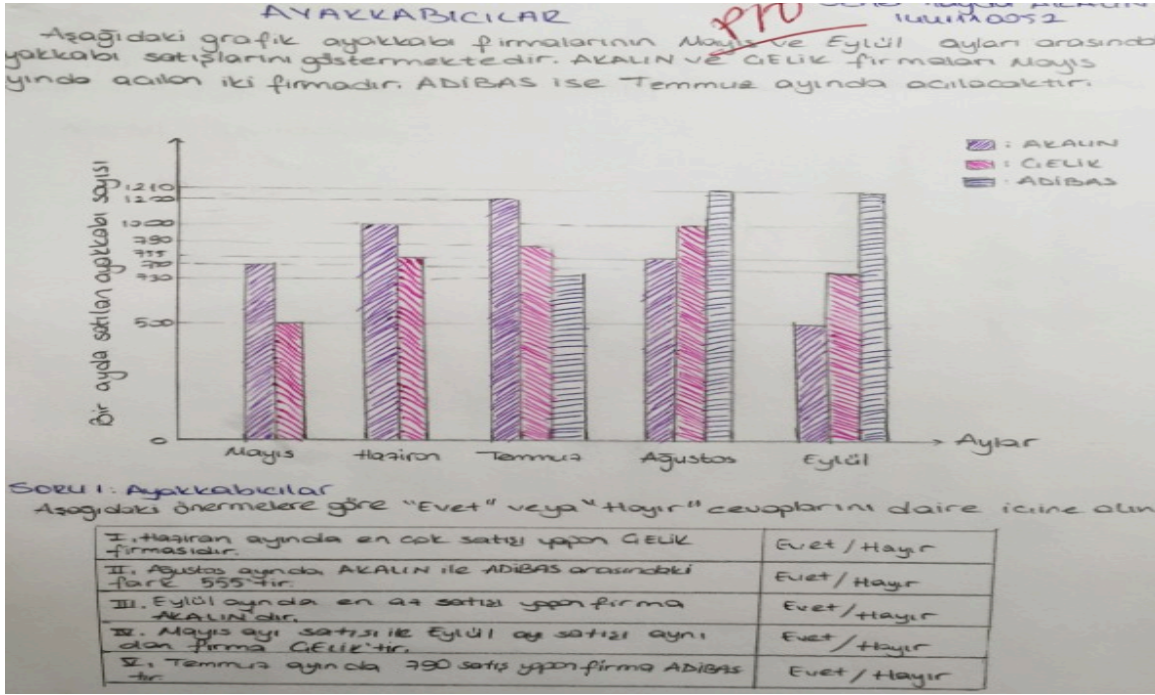 AYAKKABICILAR
pro
1441110052
Aşağıdaki grafik ayakkabı firmalarının Mayıs ve Eylül ayları arasında
yakkabı satışlarını göstermektedir. AKALIN ve GELİK firmaları Mayıs
yında açılan iki firmadır. ADİBAS ise Temmuz ayında açılacaktır.
: AKALIN
: GELİK
: ADİBAS
Bir ayda satılan ayakkabı sayısı
1210
1200
1000
790
755
730
500
0
Mayıs Haziran Temmuz Ağustos Eylül Aylar
SORU 1: Ayakkabıcılar
Aşağıdaki önermelere göre "Evet" veya "Hayır" cevaplarını daire içine alın
I. Haziran ayında en çok satışı yapan GELİK Evet / Hayır
firmasıdır.
II. Ağustos ayında AKALIN ile ADİBAS arasındaki Evet / Hayır
fark 555'tir.
III. Eylül ayında en az satışı yapan firma Evet / Hayır
AKALIN'dır.
IV. Mayıs ayı satışı ile Eylül ayı satışı aynı Evet / Hayır
olan firma GELİK'tir.
V. Temmuz ayında 790 satış yapan firma ADİBAS Evet / Hayır
tır.